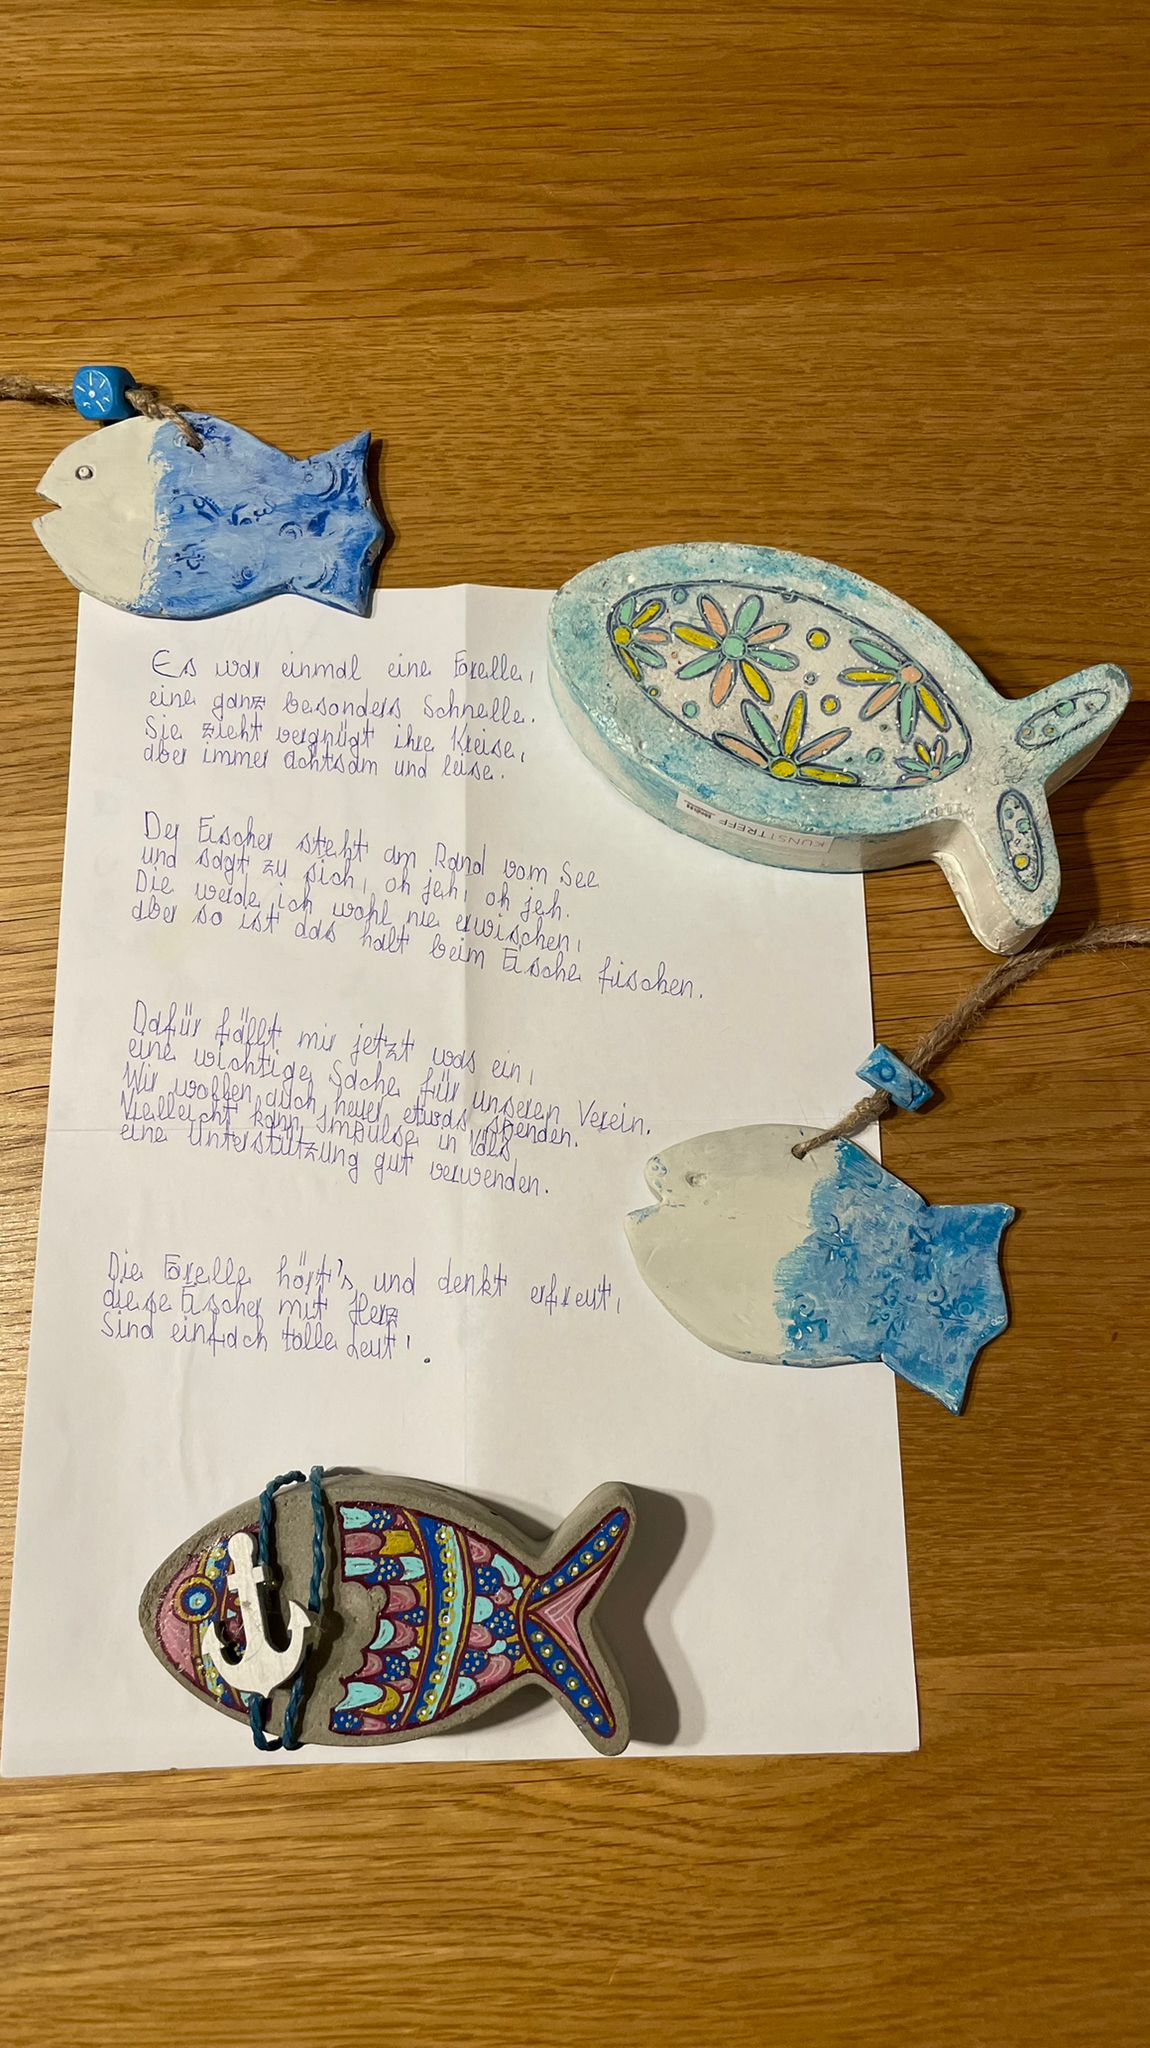 Es war einmal eine Forelle,
eine ganz besonders Schnelle.
Sie zieht vergnügt ihre Kreise,
aber immer achtsam und leise.
Der Fischer steht am Rand vom See
und sagt zu sich, oh jeh, oh jeh.
Die werde ich wohl nie erwischen,
aber so ist das halt beim Fische fischen.
Dafür fällt mir jetzt was ein,
eine wichtige Sache für unseren Verein.
Wir wollen auch heuer etwas spenden.
Vielleicht kann Impulse in Vols
eine Unterstützung gut verwenden.
Die Forelle hört's und denkt erfreut,
diese Fischer mit Herz
Sind einfach tolle Leut'.
KUNSTTREFF